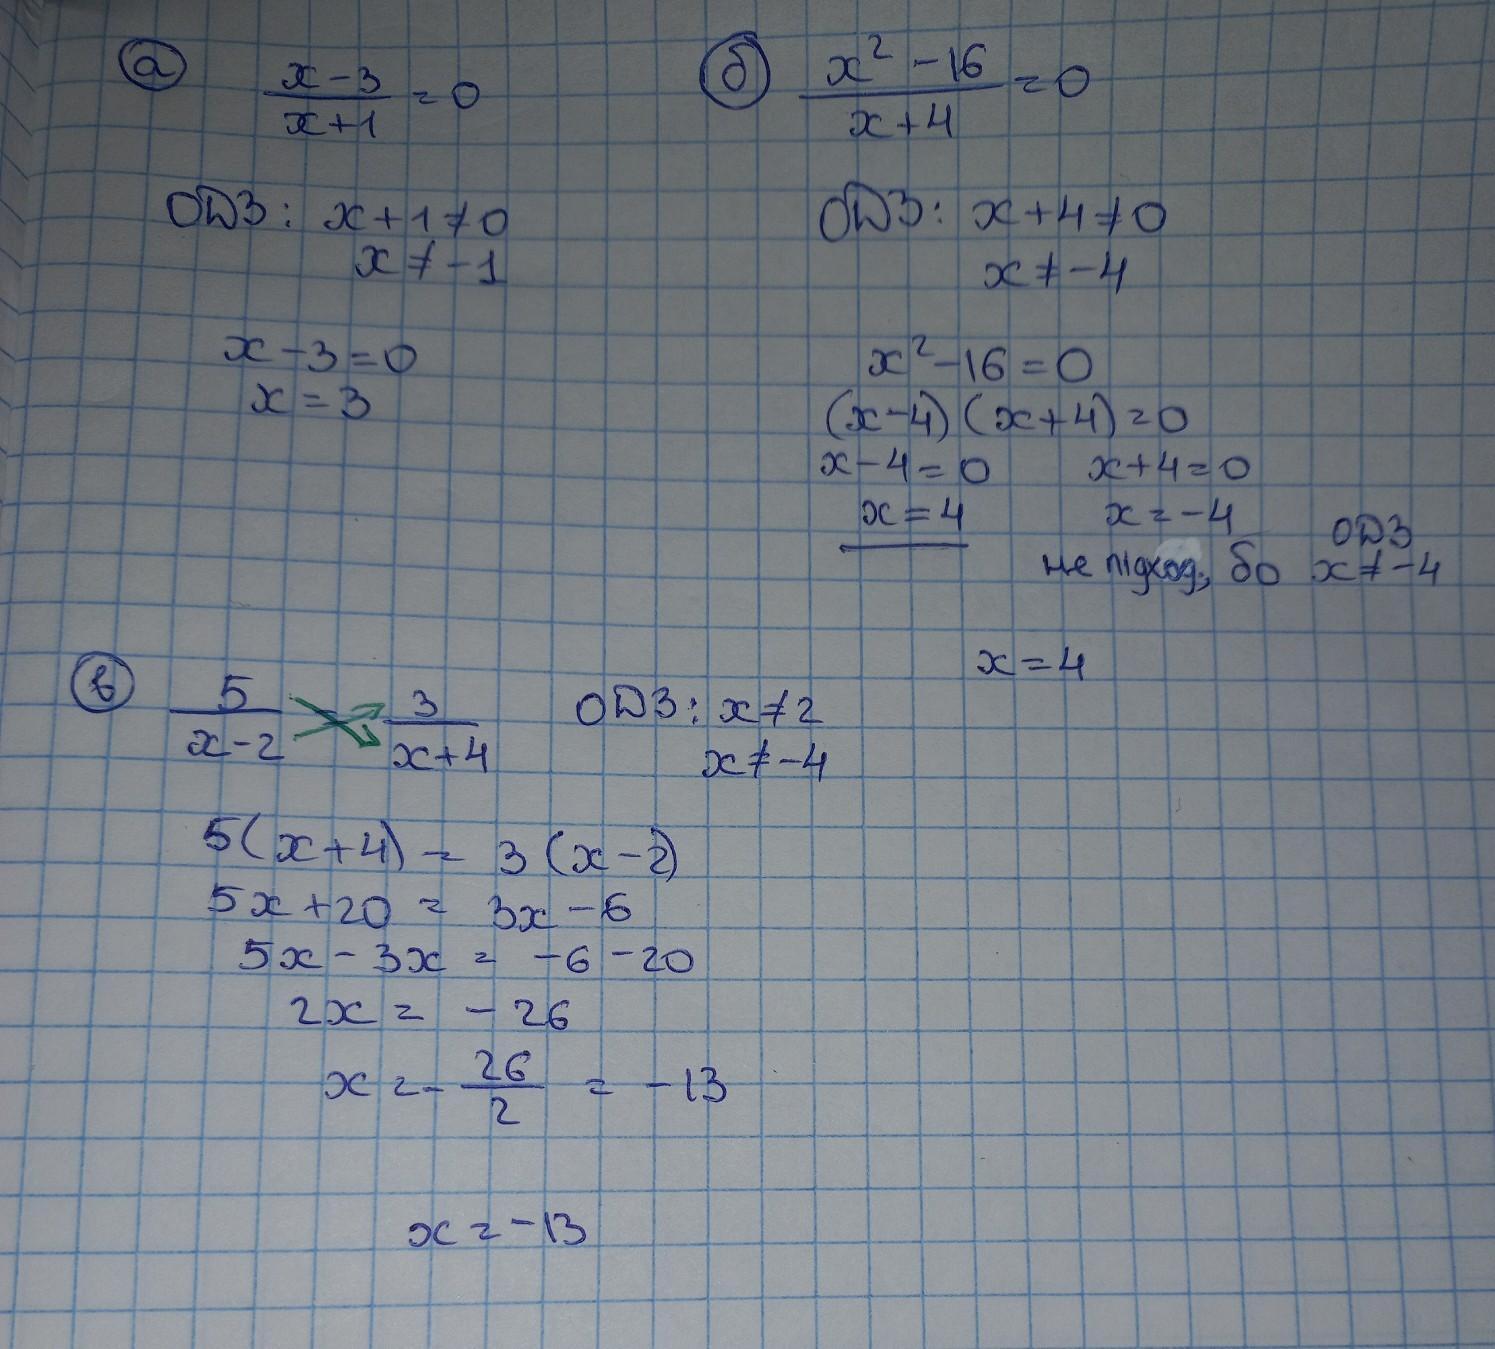 а) (x-3)/(x+1) = 0
ОДЗ: x+1≠0
x≠-1
x-3=0
x=3
б) (x²-16)/(x+4) = 0
ОДЗ: x+4≠0
x≠-4
x²-16=0
(x-4)(x+4)=0
x-4=0 x+4=0
x=4 x=-4
не підход, бо ОДЗ x≠-4
x=4
в) 5/(x-2) 3/(x+4) ОДЗ: x≠2
x≠-4
5(x+4) = 3(x-2)
5x+20 = 3x-6
5x-3x = -6-20
2x = -26
x = -26/2 = -13
x = -13